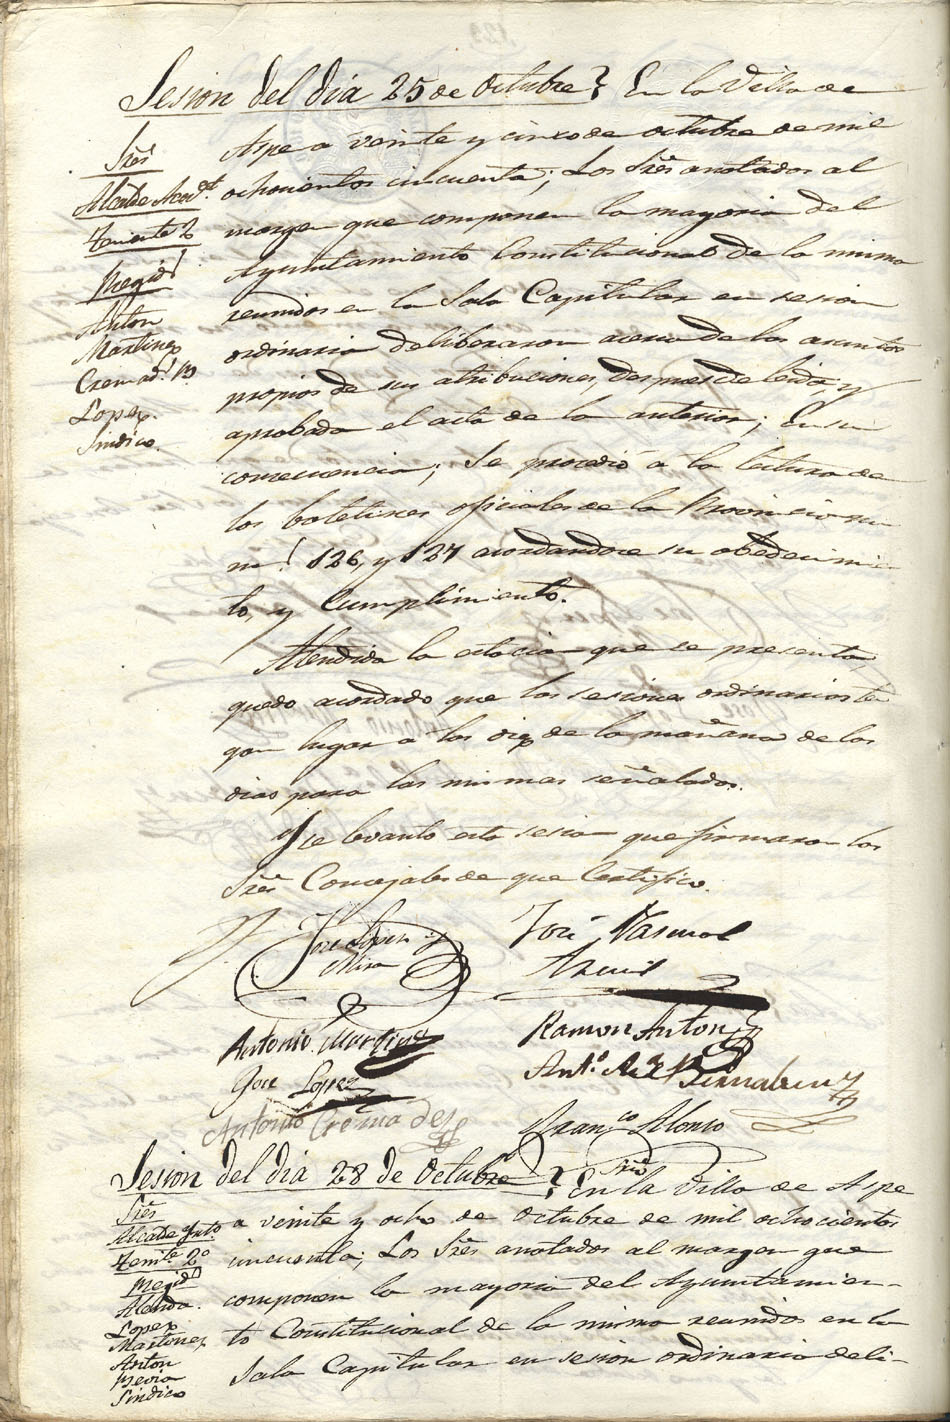 Sesion del dia 25 de Octubre } En la Villa de
Sres
Alcalde Acc.l
Teniente 2º
Regid.s
Anton
Martinez
Cremad.s
Lopez.
Sindico.
Aspe a veinte y cinco de octubre de mil
ochocientos cincuenta; Los Sres anotados al
margen que componen la mayoria del
Ayuntamiento Constitucional de la misma
reunidos en la Sala Capitular en sesion
ordinaria deliberaron acerca de los asuntos
propios de sus atribuciones, despues de leida y
aprobada el acta de la anterior; En su
consecuencia; Se procedió a la lectura de
los boletines oficiales de la Provincia nu
m.s 126, y 127 acordandose su obedecimie
to, y Cumplimiento.
Atendida la estacion que se presenta,
quedo acordado que las sesiones ordinarias ten
gan lugar a las diez de la mañana de los
dias para las mismas señalados.
Y se levanto esta sesion que firmaron los
Sres Concejales de que Certifico.
Jose Lopez y
Mira
José Pascual
Antonio Martinez
Ramon Anton
Jose Lopez
Ant.º
Antonio Cremades
Fran.co Alonso
Srio
Sesion del dia 28 de Octubre } En la Villa de Aspe
Sres
Alcalde Int.º
Tente 2º
Regid.s
Alenda.
Lopez
Martinez
Anton
Sindico
a veinte y ocho de Octubre de mil ochocientos
cincuenta; Los Sres anotados al margen que
componen la mayoria del Ayuntamien-
to Constitucional de la misma reunidos en la
Sala Capitular en sesion ordinaria deli-